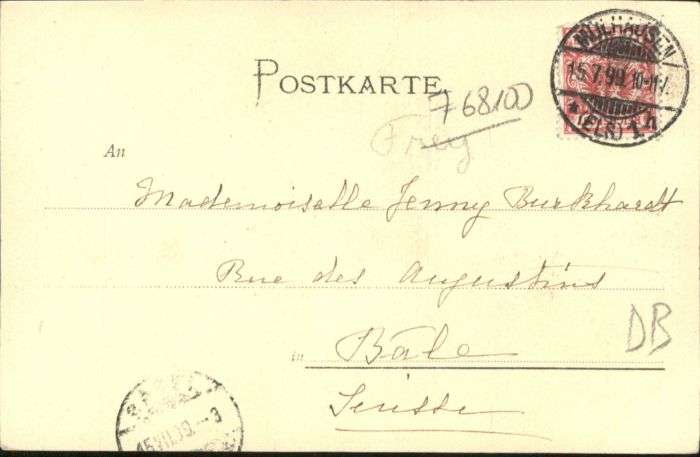 POSTKARTE.
MÜLHAUSEN
15.7.99.10-11V.
* (ELS) 1 h
76810
Frey
An
Mademoiselle Jenny Burkhardt
Rue des Augustins
in Bâle
Suisse
DB
BASEL
15.VII.99.-3